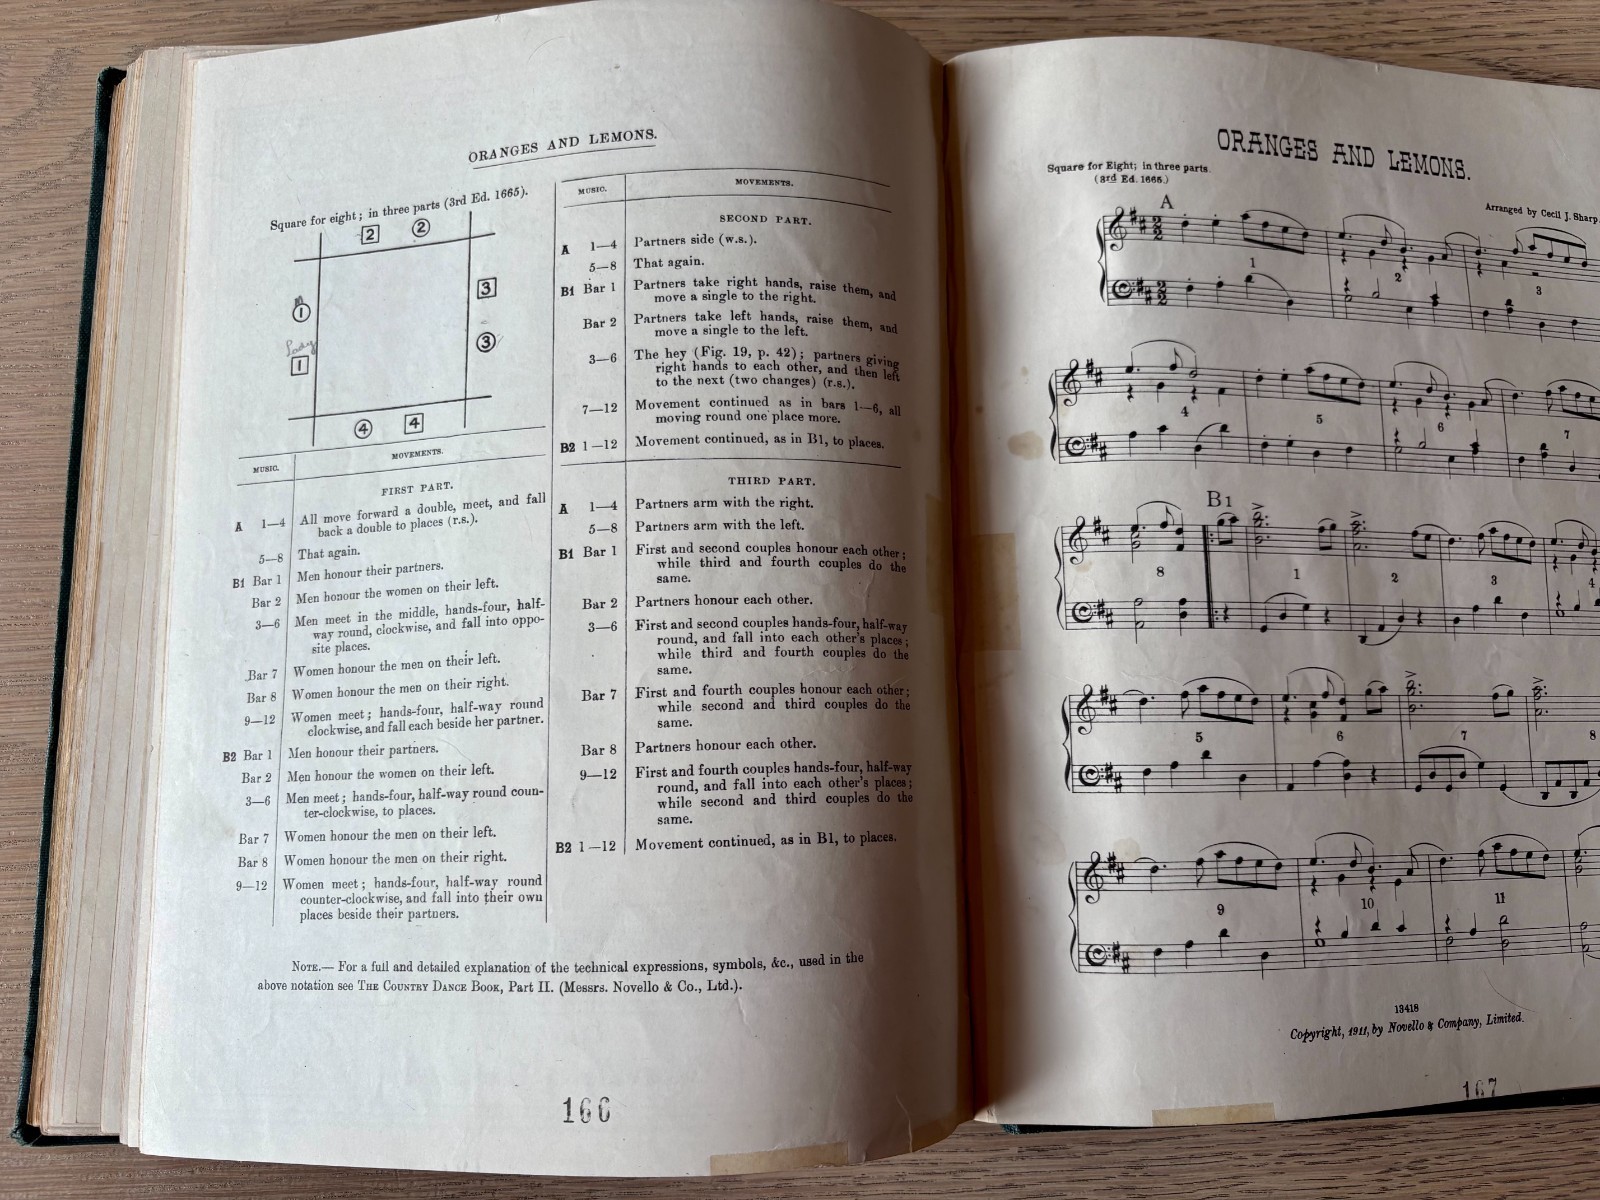 ORANGES AND LEMONS.
Square for eight; in three parts (3rd Ed. 1665).
2 2
3
1
3
Lady
1
4 4
MUSIC. MOVEMENTS.
FIRST PART.
A 1—4 All move forward a double, meet, and fall
back a double to places (r.s.).
5—8 That again.
B1 Bar 1 Men honour their partners.
Bar 2 Men honour the women on their left.
3—6 Men meet in the middle, hands-four, half-
way round, clockwise, and fall into oppo-
site places.
Bar 7 Women honour the men on their left.
Bar 8 Women honour the men on their right.
9—12 Women meet; hands-four, half-way round
clockwise, and fall each beside her partner.
B2 Bar 1 Men honour their partners.
Bar 2 Men honour the women on their left.
3—6 Men meet; hands-four, half-way round coun-
ter-clockwise, to places.
Bar 7 Women honour the men on their left.
Bar 8 Women honour the men on their right.
9—12 Women meet; hands-four, half-way round
counter-clockwise, and fall into their own
places beside their partners.
MUSIC. MOVEMENTS.
SECOND PART.
A 1—4 Partners side (w.s.).
5—8 That again.
B1 Bar 1 Partners take right hands, raise them, and
move a single to the right.
Bar 2 Partners take left hands, raise them, and
move a single to the left.
3—6 The hey (Fig. 19, p. 42); partners giving
right hands to each other, and then left
to the next (two changes) (r.s.).
7—12 Movement continued as in bars 1—6, all
moving round one place more.
B2 1—12 Movement continued, as in B1, to places.
THIRD PART.
A 1—4 Partners arm with the right.
5—8 Partners arm with the left.
B1 Bar 1 First and second couples honour each other;
while third and fourth couples do the
same.
Bar 2 Partners honour each other.
3—6 First and second couples hands-four, half-way
round, and fall into each other's places;
while third and fourth couples do the
same.
Bar 7 First and fourth couples honour each other;
while second and third couples do the
same.
Bar 8 Partners honour each other.
9—12 First and fourth couples hands-four, half-way
round, and fall into each other's places;
while second and third couples do the
same.
B2 1—12 Movement continued, as in B1, to places.
NOTE.— For a full and detailed explanation of the technical expressions, symbols, &c., used in the
above notation see THE COUNTRY DANCE BOOK, Part II. (Messrs. Novello & Co., Ltd.).
166
ORANGES AND LEMONS.
Square for Eight; in three parts.
(3rd Ed. 1665.)
Arranged by Cecil J. Sharp.
A
1 2 3
4 5 6 7
B1
8 1 2 3 4
5 6 7 8
9 10 11
13418
Copyright, 1911, by Novello & Company, Limited.
167